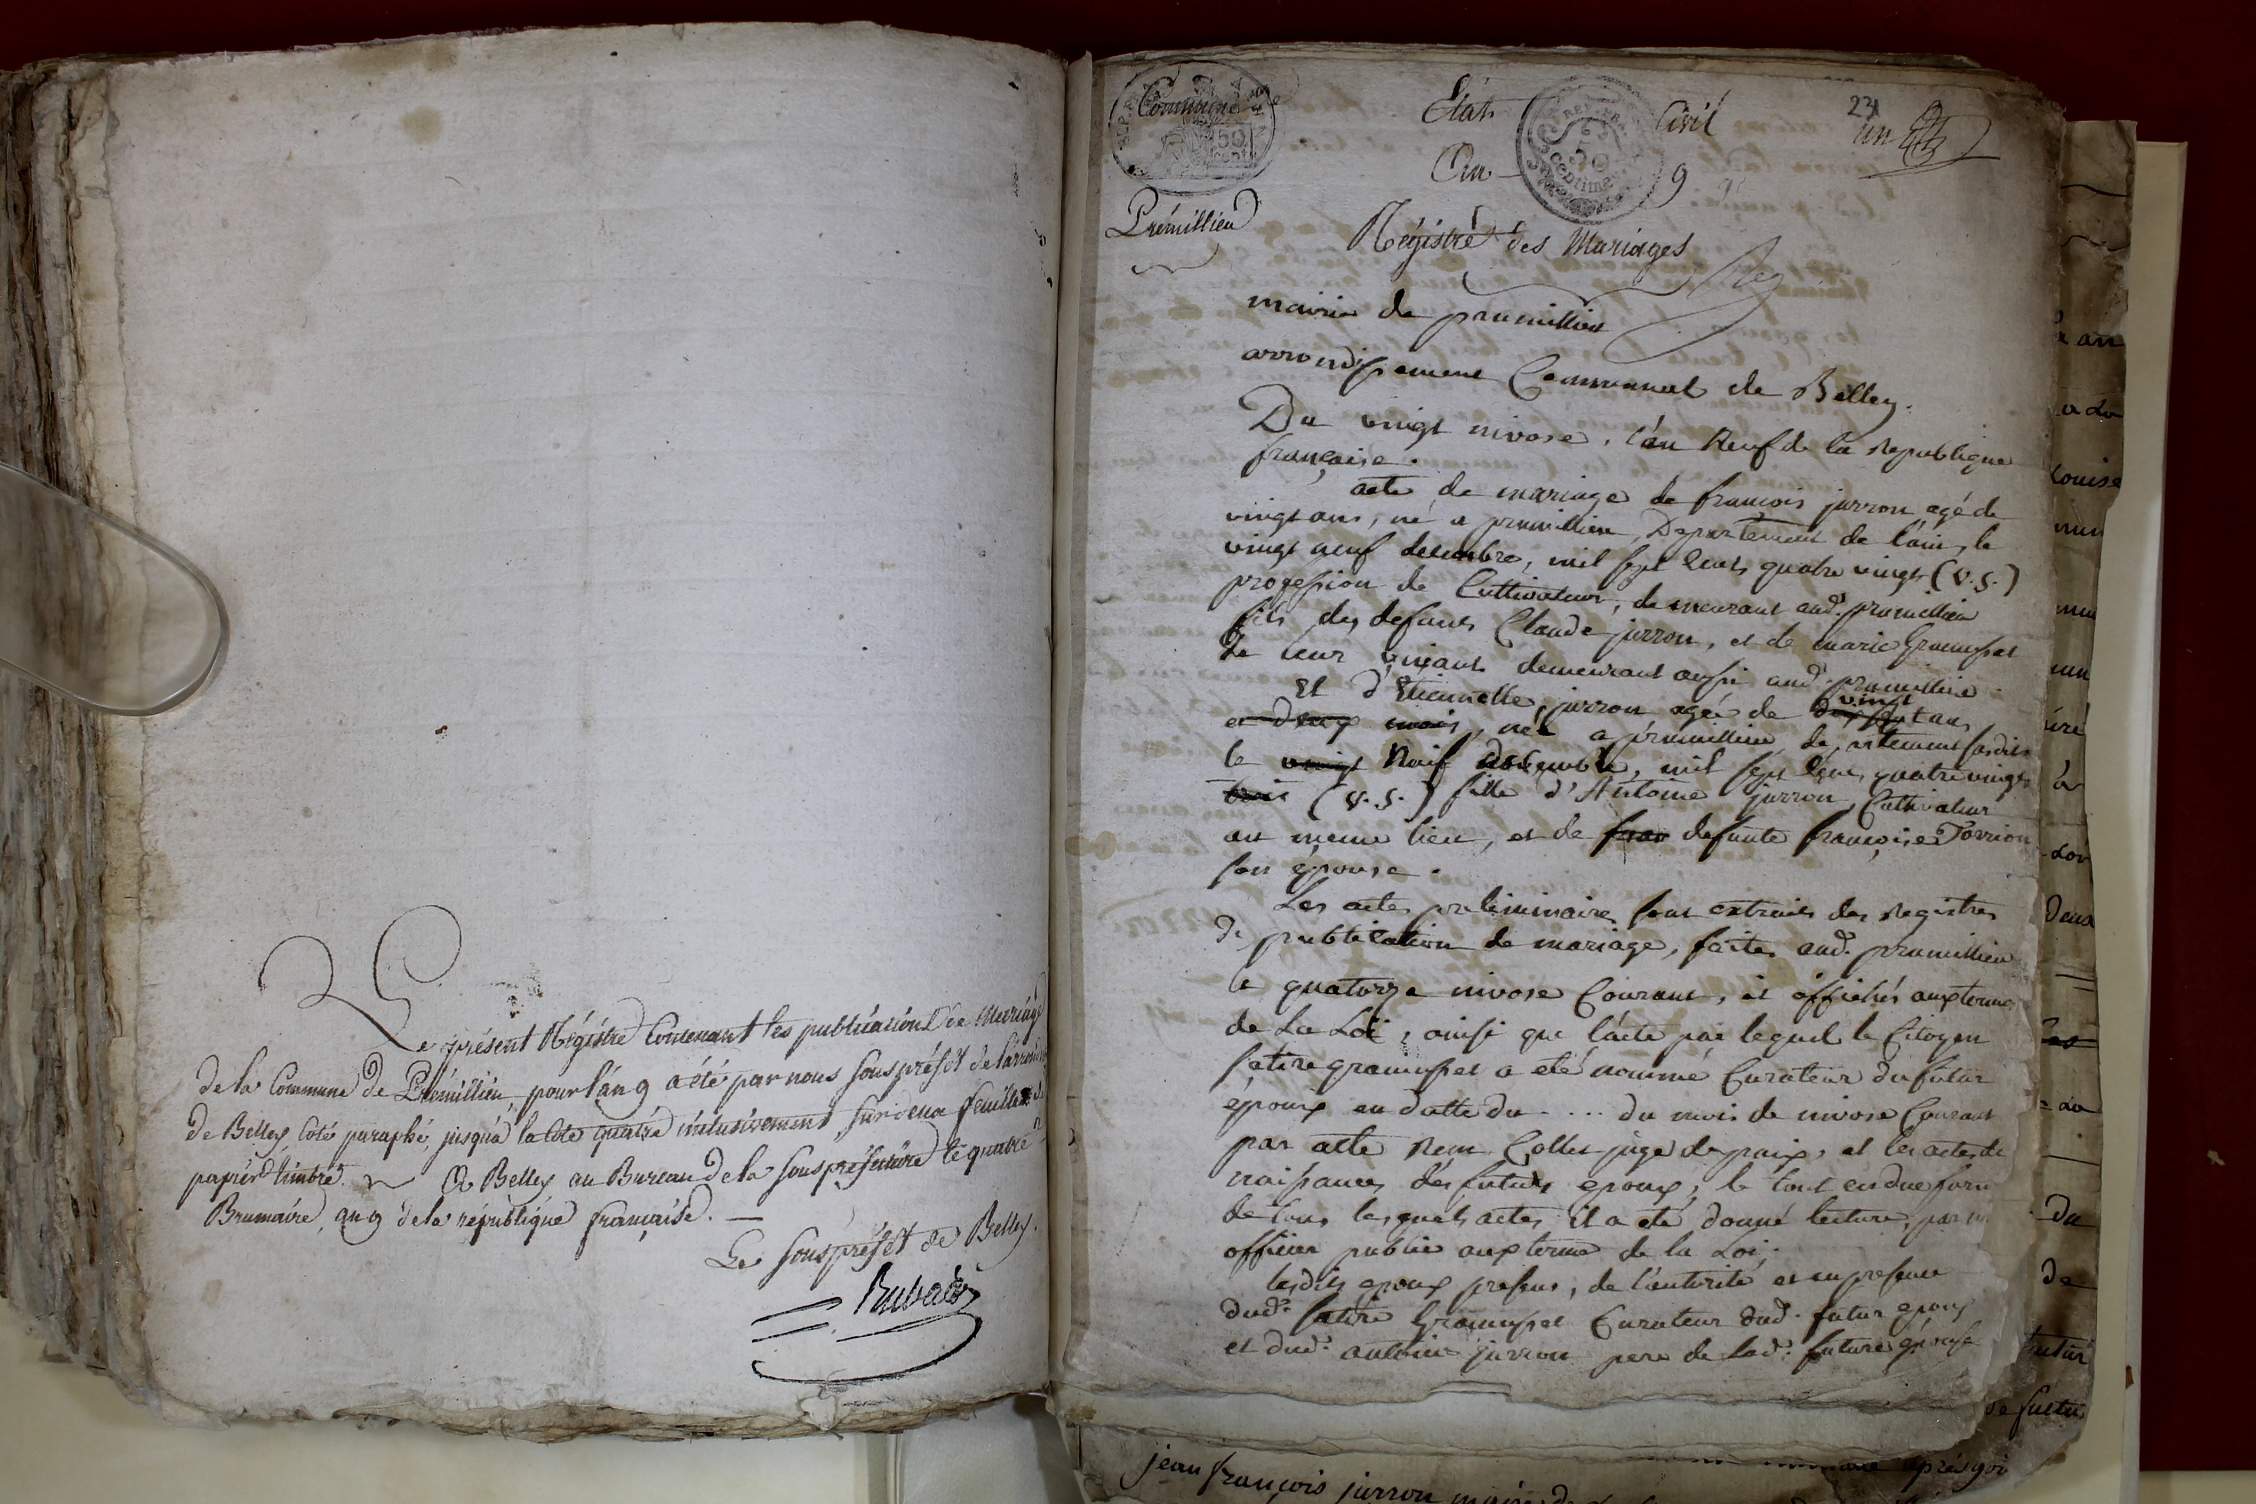 Le présent Régistre Contenant les publications de Marriage
de la Commune de Prémillieu, pour l'an 9 a été par nous sous préfét de l'arrond
de Belley Coté paraphé, jusqu'a la Cote quatre inclusivement, sur deux feuilles de
papier timbré. A Belley au Bureau de la sous préfecture le quatre
Brumaire, an 9 de la république française.
Le sous préfét de Belley.
Commune
Prémillieu
Etat Civil
An 9
23
un
Régistre des Mariages
mairie de prumillieu
arrondissement Communal de Belley.
Du vingt nivose, l'an Neuf de la Republique
française.
acte de mariage de françois jurron agé de
vingt ans, né a prumillieu, Departement de l'ain, le
vingt neuf decembre, mil sept cents quatre vingt (v.s.)
profession de Cultivateur, demeurant aud. prumillieu
fils des defunts Claude jurron, et de marie Grumpel
de leur vivant demeurant aussi aud. prumillieu
Et d'Etiennette jurron agée de vingt ans
et deux mois, née a prumillieu, departement susdit
le vingt Neuf decembre, mil sept cent quatre vingt
trois (v.s.) fille d'Antoine jurron Cultivateur
au meme lieu, et de fran defunte françoise Torrion
son épouse.
Les actes preliminaires sont extraits des Registres
de publication de mariage, faites aud. prumillieu
le quatorze nivose Courant, et affichés aux termes
de La Loi, ainsi que l'acte par lequel le Citoyen
a eté nommé Curateur du futur
époux en datte du .... du mois de nivose Courant
par acte Rem Collet juge de paix, et les actes de
naissances des futurs epoux, le tout en due form
de tous lesquels actes il a eté donné lecture, par
officier public aux terme de la Loi.
lesdits epoux presens, de l'autorité et en presence
dud. Curateur dud. futur epoux
et dud. antoine jurron pere de Lad. future épouse
jean françois jurron maire de